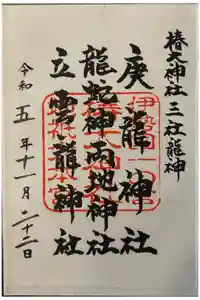 椿大神社三社龍神
庚龍神社
龍蛇神両地神社
立雲龍神社
令和五年十一月二十二日
伊勢国一宮